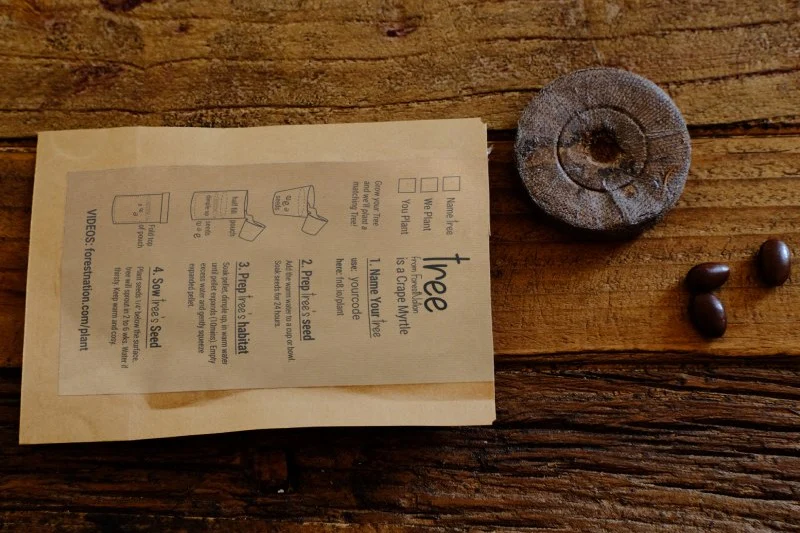 tree
from ForestNation
is a Crape Myrtle
Name tree
We Plant
You Plant
Grow your Tree
and we'll plant a
matching Tree!
1. Name Your tree
use: yourcode
here: fn8.io/plant
2. Prep tree's seed
Add the warm water to a cup or bowl.
Soak seeds for 24 hours.
3. Prep tree's habitat
Soak pellet, dimple up, in warm water
until pellet expands (10mins). Empty
excess water and gently squeeze
expanded pellet.
half fill pouch
4. Sow tree's Seed
Plant seeds 1/2" below the surface.
tree will sprout in 2 to 6 wks. Water if
thirsty. Keep warm and cosy.
Fold top
of pouch
VIDEOS: forestnation.com/plant